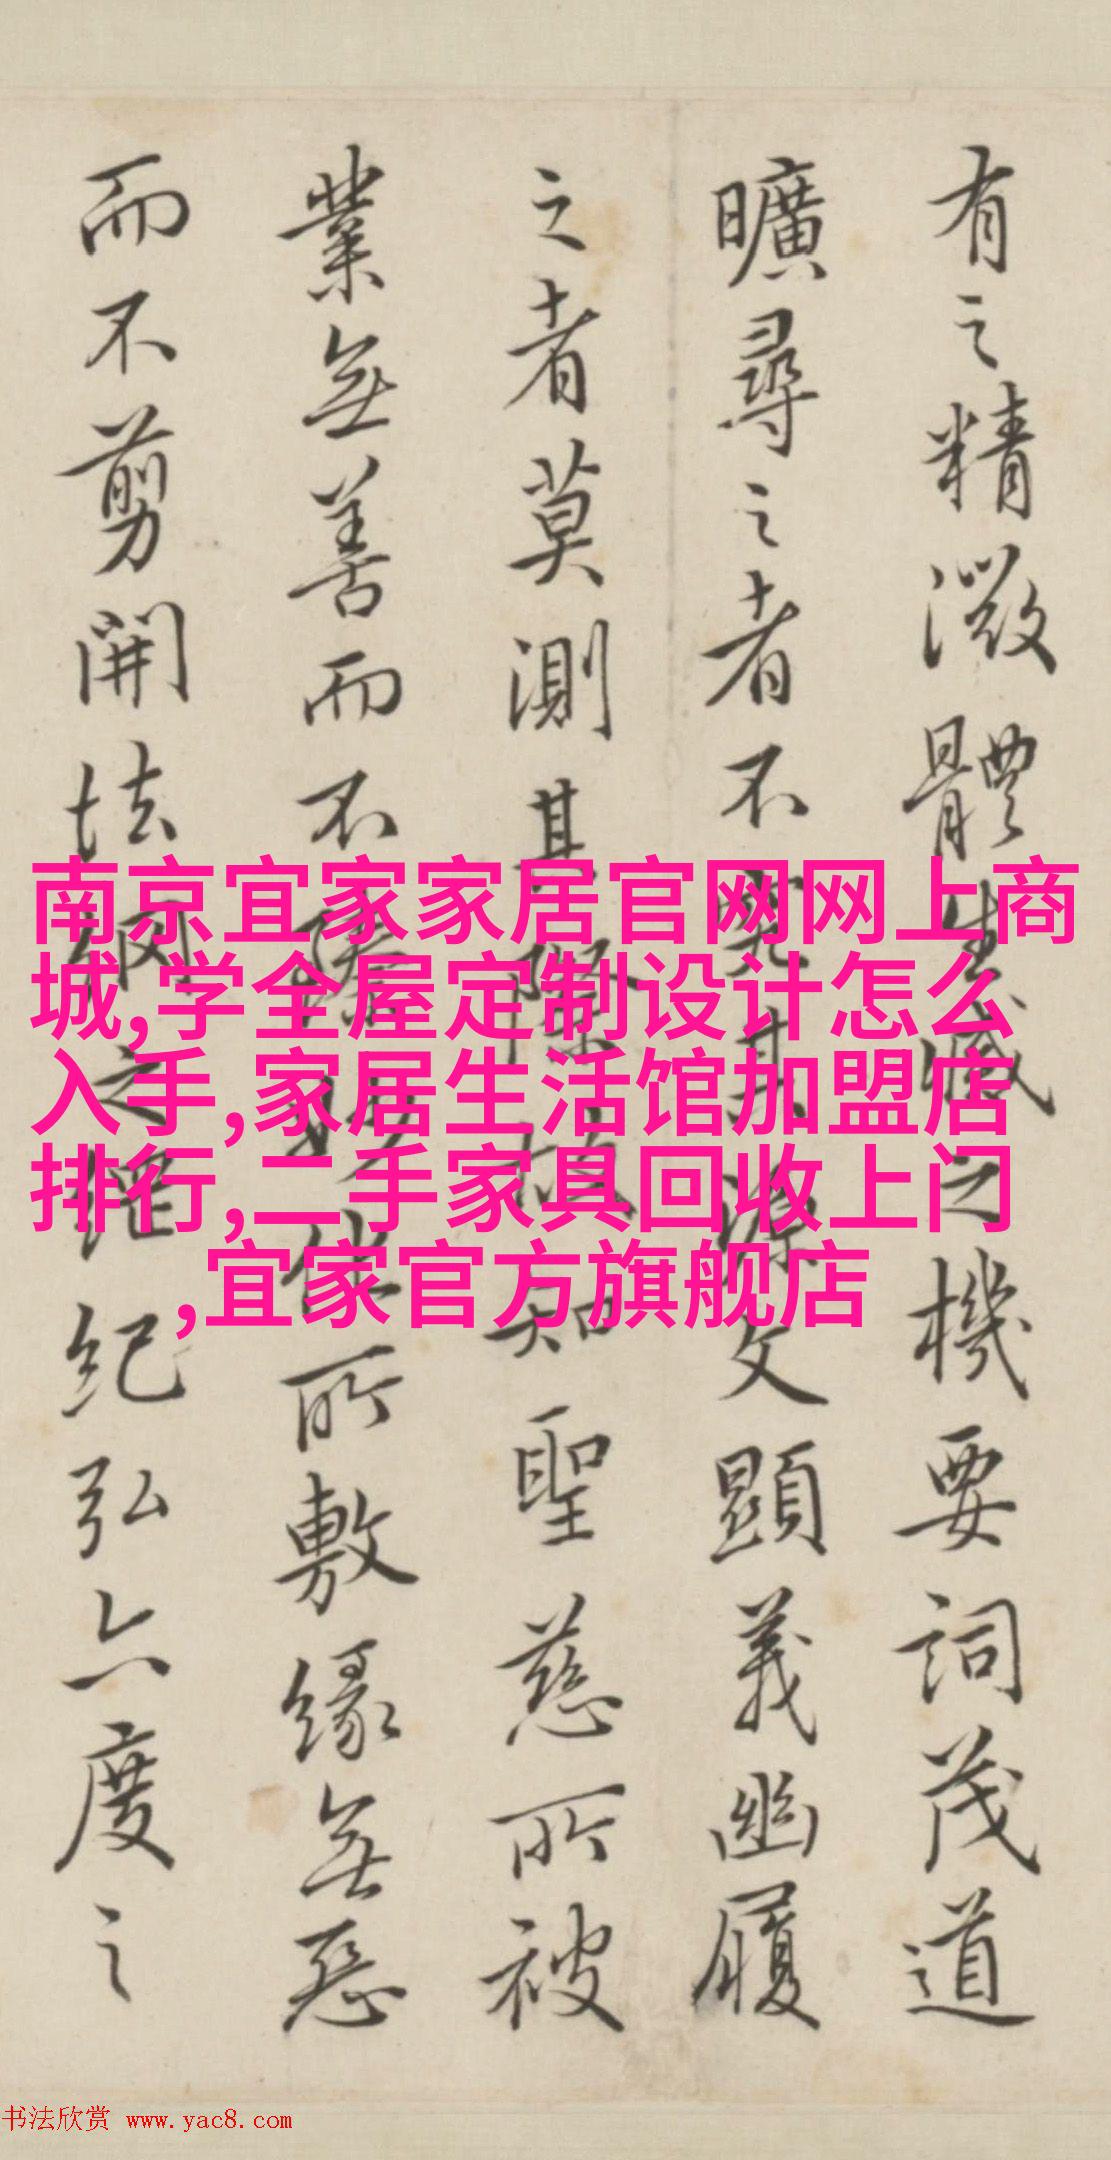 有之精微體生滅之機要詞茂道
曠尋之者不究其源文顯義幽履
之者莫測其際故知聖慈所被
業無善而不臻妙化所敷緣無惡
而不剪開法網之綱紀弘六度之
南京宜家家居官网网上商
城,学全屋定制设计怎么
入手,家居生活馆加盟店
排行,二手家具回收上门
,宜家官方旗舰店
书法欣赏 www.yac8.com